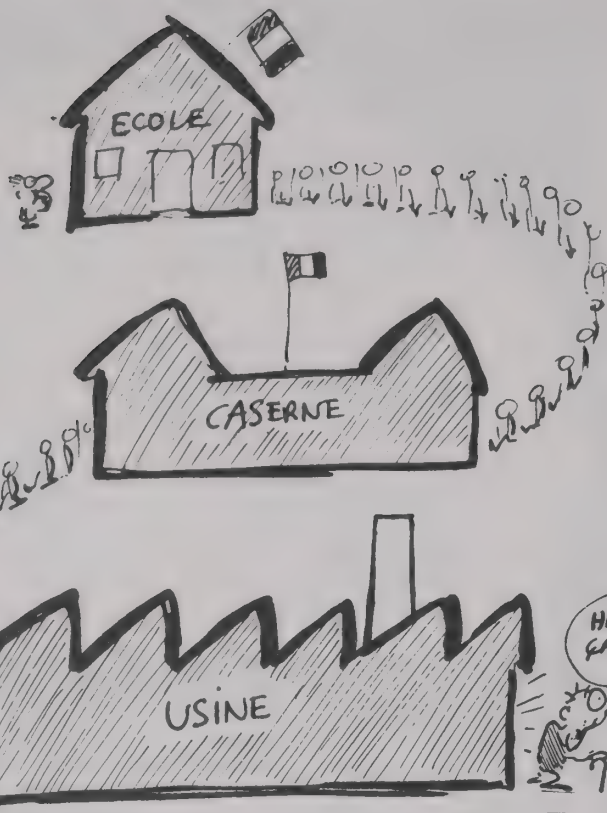 ECOLE
CASERNE
USINE